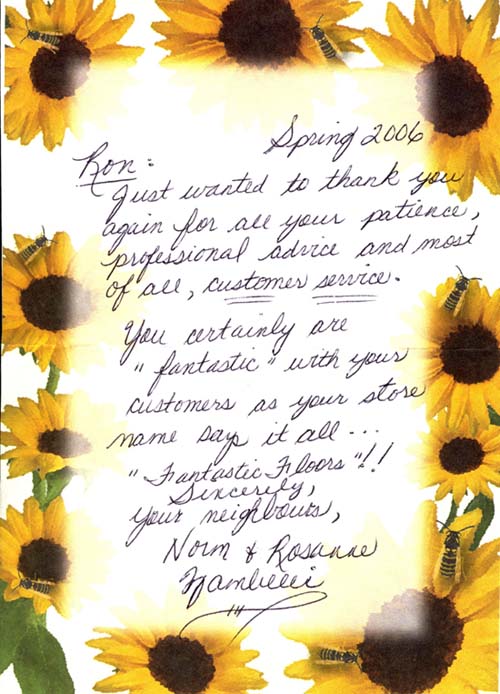 Spring 2006
Ron:
Just wanted to thank you
again for all your patience,
professional advice and most
of all, customer service.
You certainly are
"fantastic" with your
customers as your store
name says it all...
"Fantastic Floors"!!
Sincerely,
your neighbours,
Norm & Rosanne